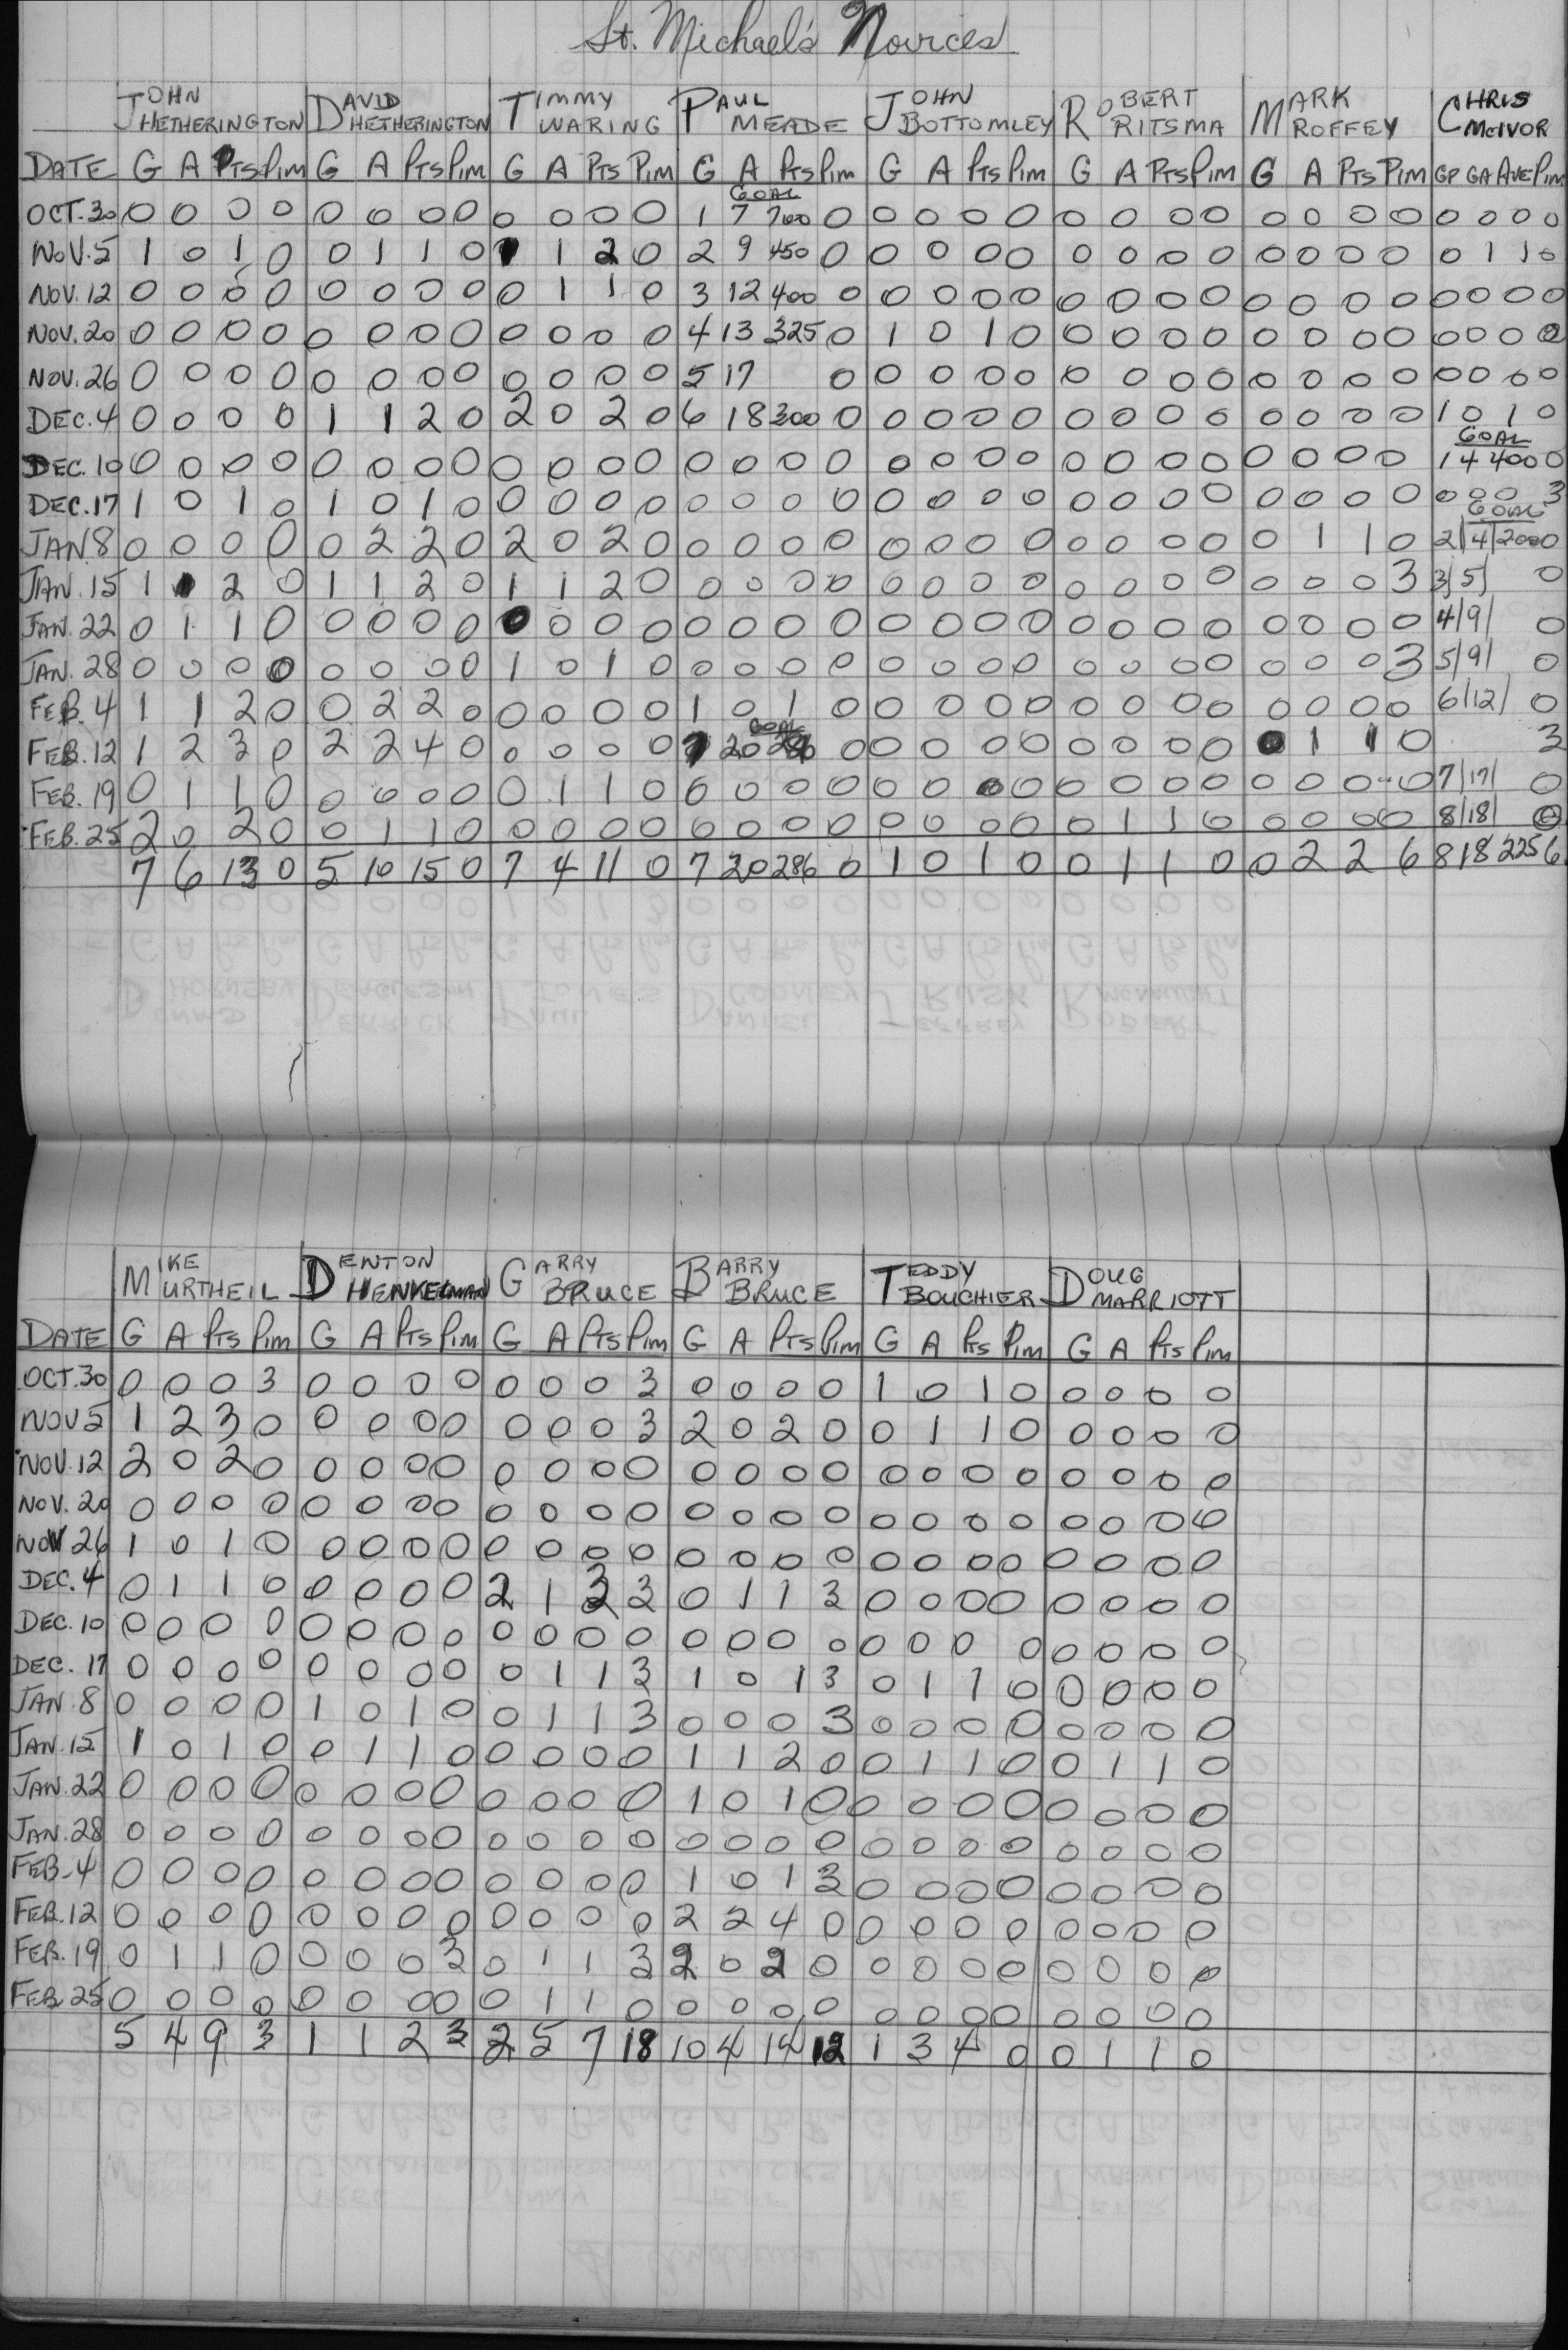 St. Michael's Novices
JOHN HETHERINGTON DAVID HETHERINGTON TIMMY WARING PAUL MEADE JOHN BOTTOMLEY ROBERT RITSMA MARK ROFFEY CHRIS McIVOR
DATE G A PTS PIM G A PTS PIM G A PTS PIM G A PTS PIM G A PTS PIM G A PTS PIM G A PTS PIM GP GA AVE PIM
GOAL
OCT. 30 0 0 0 0 0 0 0 0 0 0 0 0 1 7 700 0 0 0 0 0 0 0 0 0 0 0 0 0 0 0 0 0
NOV. 5 1 0 1 0 0 1 1 0 1 1 2 0 2 9 450 0 0 0 0 0 0 0 0 0 0 0 0 0 0 1 1 0
NOV. 12 0 0 0 0 0 0 0 0 0 1 1 0 3 12 400 0 0 0 0 0 0 0 0 0 0 0 0 0 0 0 0 0
NOV. 20 0 0 0 0 0 0 0 0 0 0 0 0 4 13 325 0 1 0 1 0 0 0 0 0 0 0 0 0 0 0 0 0
NOV. 26 0 0 0 0 0 0 0 0 0 0 0 0 5 17 0 0 0 0 0 0 0 0 0 0 0 0 0 0 0 0 0
DEC. 4 0 0 0 0 1 1 2 0 2 0 2 0 6 18 300 0 0 0 0 0 0 0 0 0 0 0 0 0 1 0 1 0
GOAL
DEC. 10 0 0 0 0 0 0 0 0 0 0 0 0 0 0 0 0 0 0 0 0 0 0 0 0 0 0 0 0 1 4 400 0
DEC. 17 1 0 1 0 1 0 1 0 0 0 0 0 0 0 0 0 0 0 0 0 0 0 0 0 0 0 0 0 0 0 0 3
GOAL
JAN 8 0 0 0 0 0 2 2 0 2 0 2 0 0 0 0 0 0 0 0 0 0 0 0 0 0 1 1 0 2/4/200 0
JAN. 15 1 1 2 0 1 1 2 0 1 1 2 0 0 0 0 0 0 0 0 0 0 0 0 0 0 0 0 3 3/5/ 0
JAN. 22 0 1 1 0 0 0 0 0 0 0 0 0 0 0 0 0 0 0 0 0 0 0 0 0 0 0 0 0 4/9/ 0
JAN. 28 0 0 0 0 0 0 0 0 1 0 1 0 0 0 0 0 0 0 0 0 0 0 0 0 0 0 0 3 5/9/ 0
FEB. 4 1 1 2 0 0 2 2 0 0 0 0 0 1 0 1 0 0 0 0 0 0 0 0 0 0 0 0 0 6/12/ 0
GOAL
FEB. 12 1 2 3 0 2 2 4 0 0 0 0 0 7 20 286 0 0 0 0 0 0 0 0 0 0 1 1 0 3
FEB. 19 0 1 1 0 0 0 0 0 0 1 1 0 0 0 0 0 0 0 0 0 0 0 0 0 0 0 0 0 7/17/ 0
FEB. 25 2 0 2 0 0 1 1 0 0 0 0 0 0 0 0 0 0 0 0 0 0 1 1 0 0 0 0 0 8/18/ 0
7 6 13 0 5 10 15 0 7 4 11 0 7 20 286 0 1 0 1 0 0 1 1 0 0 2 2 6 8 18 225 6
MIKE MURTHEIL DENTON HENKELMAN GARRY BRUCE BARRY BRUCE TEDDY BOUCHIER DOUG MARRIOTT
DATE G A PTS PIM G A PTS PIM G A PTS PIM G A PTS PIM G A PTS PIM G A PTS PIM
OCT. 30 0 0 0 3 0 0 0 0 0 0 0 3 0 0 0 0 1 0 1 0 0 0 0 0
NOV 5 1 2 3 0 0 0 0 0 0 0 0 3 2 0 2 0 0 1 1 0 0 0 0 0
NOV. 12 2 0 2 0 0 0 0 0 0 0 0 0 0 0 0 0 0 0 0 0 0 0 0 0
NOV. 20 0 0 0 0 0 0 0 0 0 0 0 0 0 0 0 0 0 0 0 0 0 0 0 0
NOV 26 1 0 1 0 0 0 0 0 0 0 0 0 0 0 0 0 0 0 0 0 0 0 0 0
DEC. 4 0 1 1 0 0 0 0 0 2 1 3 3 0 1 1 3 0 0 0 0 0 0 0 0
DEC. 10 0 0 0 0 0 0 0 0 0 0 0 0 0 0 0 0 0 0 0 0 0 0 0 0
DEC. 17 0 0 0 0 0 0 0 0 0 1 1 3 1 0 1 3 0 1 1 0 0 0 0 0
JAN. 8 0 0 0 0 1 0 1 0 0 1 1 3 0 0 0 3 0 0 0 0 0 0 0 0
JAN. 15 1 0 1 0 0 1 1 0 0 0 0 0 1 1 2 0 0 1 1 0 0 1 1 0
JAN. 22 0 0 0 0 0 0 0 0 0 0 0 0 1 0 1 0 0 0 0 0 0 0 0 0
JAN. 28 0 0 0 0 0 0 0 0 0 0 0 0 0 0 0 0 0 0 0 0 0 0 0 0
FEB. 4 0 0 0 0 0 0 0 0 0 0 0 0 1 0 1 3 0 0 0 0 0 0 0 0
FEB. 12 0 0 0 0 0 0 0 0 0 0 0 0 2 2 4 0 0 0 0 0 0 0 0 0
FEB. 19 0 1 1 0 0 0 0 3 0 1 1 3 2 0 2 0 0 0 0 0 0 0 0 0
FEB. 25 0 0 0 0 0 0 0 0 0 1 1 0 0 0 0 0 0 0 0 0 0 0 0 0
5 4 9 3 1 1 2 3 2 5 7 18 10 4 14 12 1 3 4 0 0 1 1 0